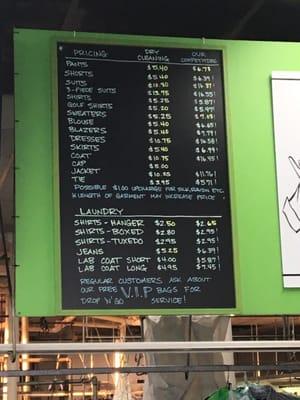 PRICING DRY CLEANING OUR COMPETITORS
PANTS $5.40 $6.73
SHORTS $5.40 $6.39!
SUITS
3-PIECE SUITS $13.75
SHIRTS $5.25
GOLF SHIRTS $5.20
SWEATERS $5.25
BLOUSE $5.40
BLAZERS
DRESSES $10.75
SKIRTS $5.40 $6.99!
COAT $10.75 $16.45!
CAP $5.00
JACKET
TIE $3.95 $5.71!
POSSIBLE $1.00 UPCHARGE FOR SILK, RAYON ETC.
* LENGTH OF GARMENT MAY INCREASE PRICE
LAUNDRY
SHIRTS - HANGER $2.50 $2.65
SHIRTS - BOXED $2.80 $2.95!
SHIRTS - TUXEDO $2.95 $2.95!
JEANS $5.25 $6.39!
LAB COAT SHORT $4.00 $5.87!
LAB COAT LONG $4.95 $7.45!
REGULAR CUSTOMERS ASK ABOUT
OUR FREE V.I.P BAGS FOR
DROP 'N' GO SERVICE!